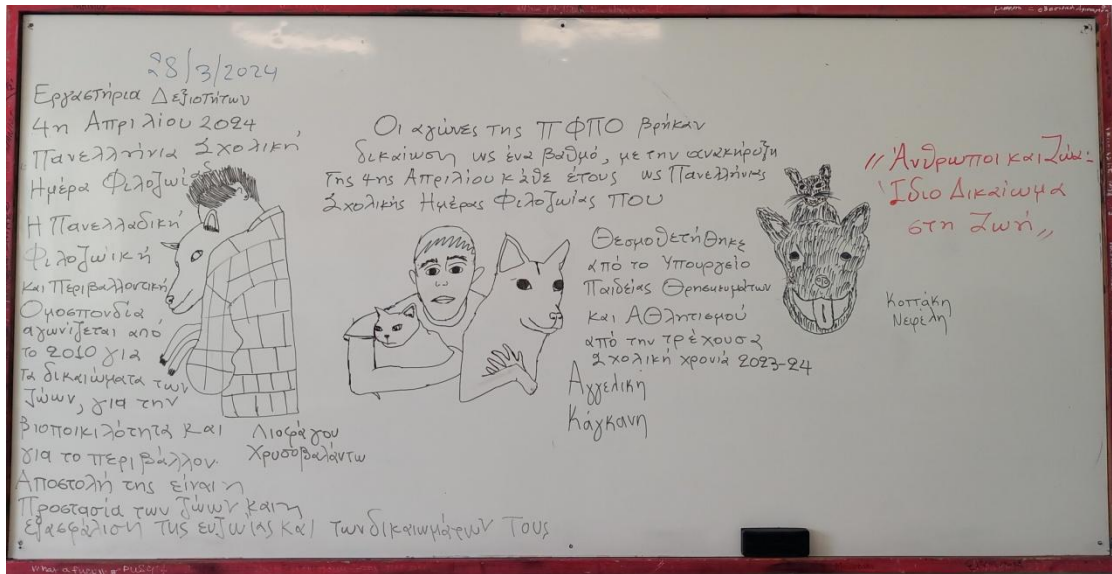 28/3/2024
Εργαστήρια Δεξιοτήτων
4η Απριλίου 2024
Πανελλήνια Σχολική
Ημέρα Φιλοζωίας
Η Πανελλαδική
Φιλοζωική
και Περιβαλλοντική
Ομοσπονδία
αγωνίζεται από
το 2010 για
τα δικαιώματα των
ζώων, για την
βιοποικιλότητα και
για το περιβάλλον.
Αποστολή της είναι η
Προστασία των ζώων και η
εξασφάλιση της ευζωίας και των δικαιωμάτων τους
Λιοφάγου
Χρυσοβαλάντω
Οι αγώνες της ΠΦΠΟ βρήκαν
δικαίωση ως ένα βαθμό, με την ανακήρυξη
της 4ης Απριλίου κάθε έτους ως Πανελλήνιας
Σχολικής Ημέρας Φιλοζωίας που
Θεσμοθετήθηκε
από το Υπουργείο
Παιδείας Θρησκευμάτων
και Αθλητισμού
από την τρέχουσα
Σχολική χρονιά 2023-24
Αγγελική
Κάγκανη
"Άνθρωποι και Ζώα:
Ίδιο Δικαίωμα
στη Ζωή"
Κοττάκη
Νεφέλη